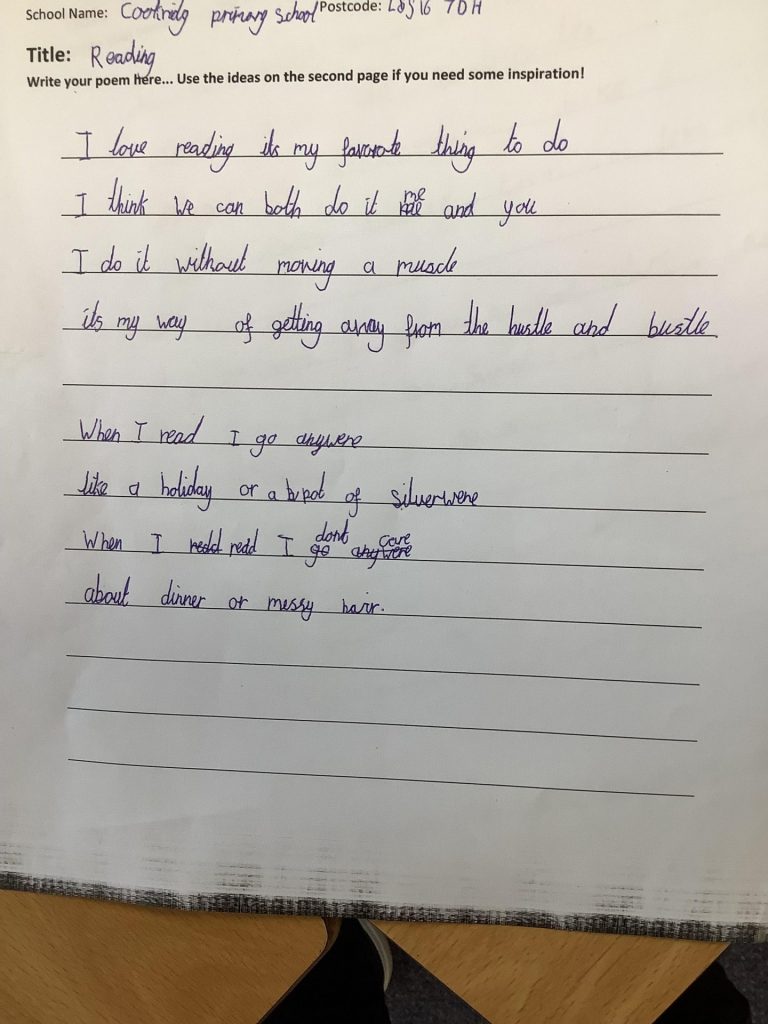 School Name: Cookridg primary school Postcode: LS16 7DH
Title: Reading
Write your poem here... Use the ideas on the second page if you need some inspiration!
I love reading its my favorate thing to do
I think we can both do it me and you
I do it without moving a muscle
its my way of getting away from the hustle and bustle.
When I read I go anywere
like a holiday or a pot of silverwere
When I redd I dont care
about dinner or messy hair.